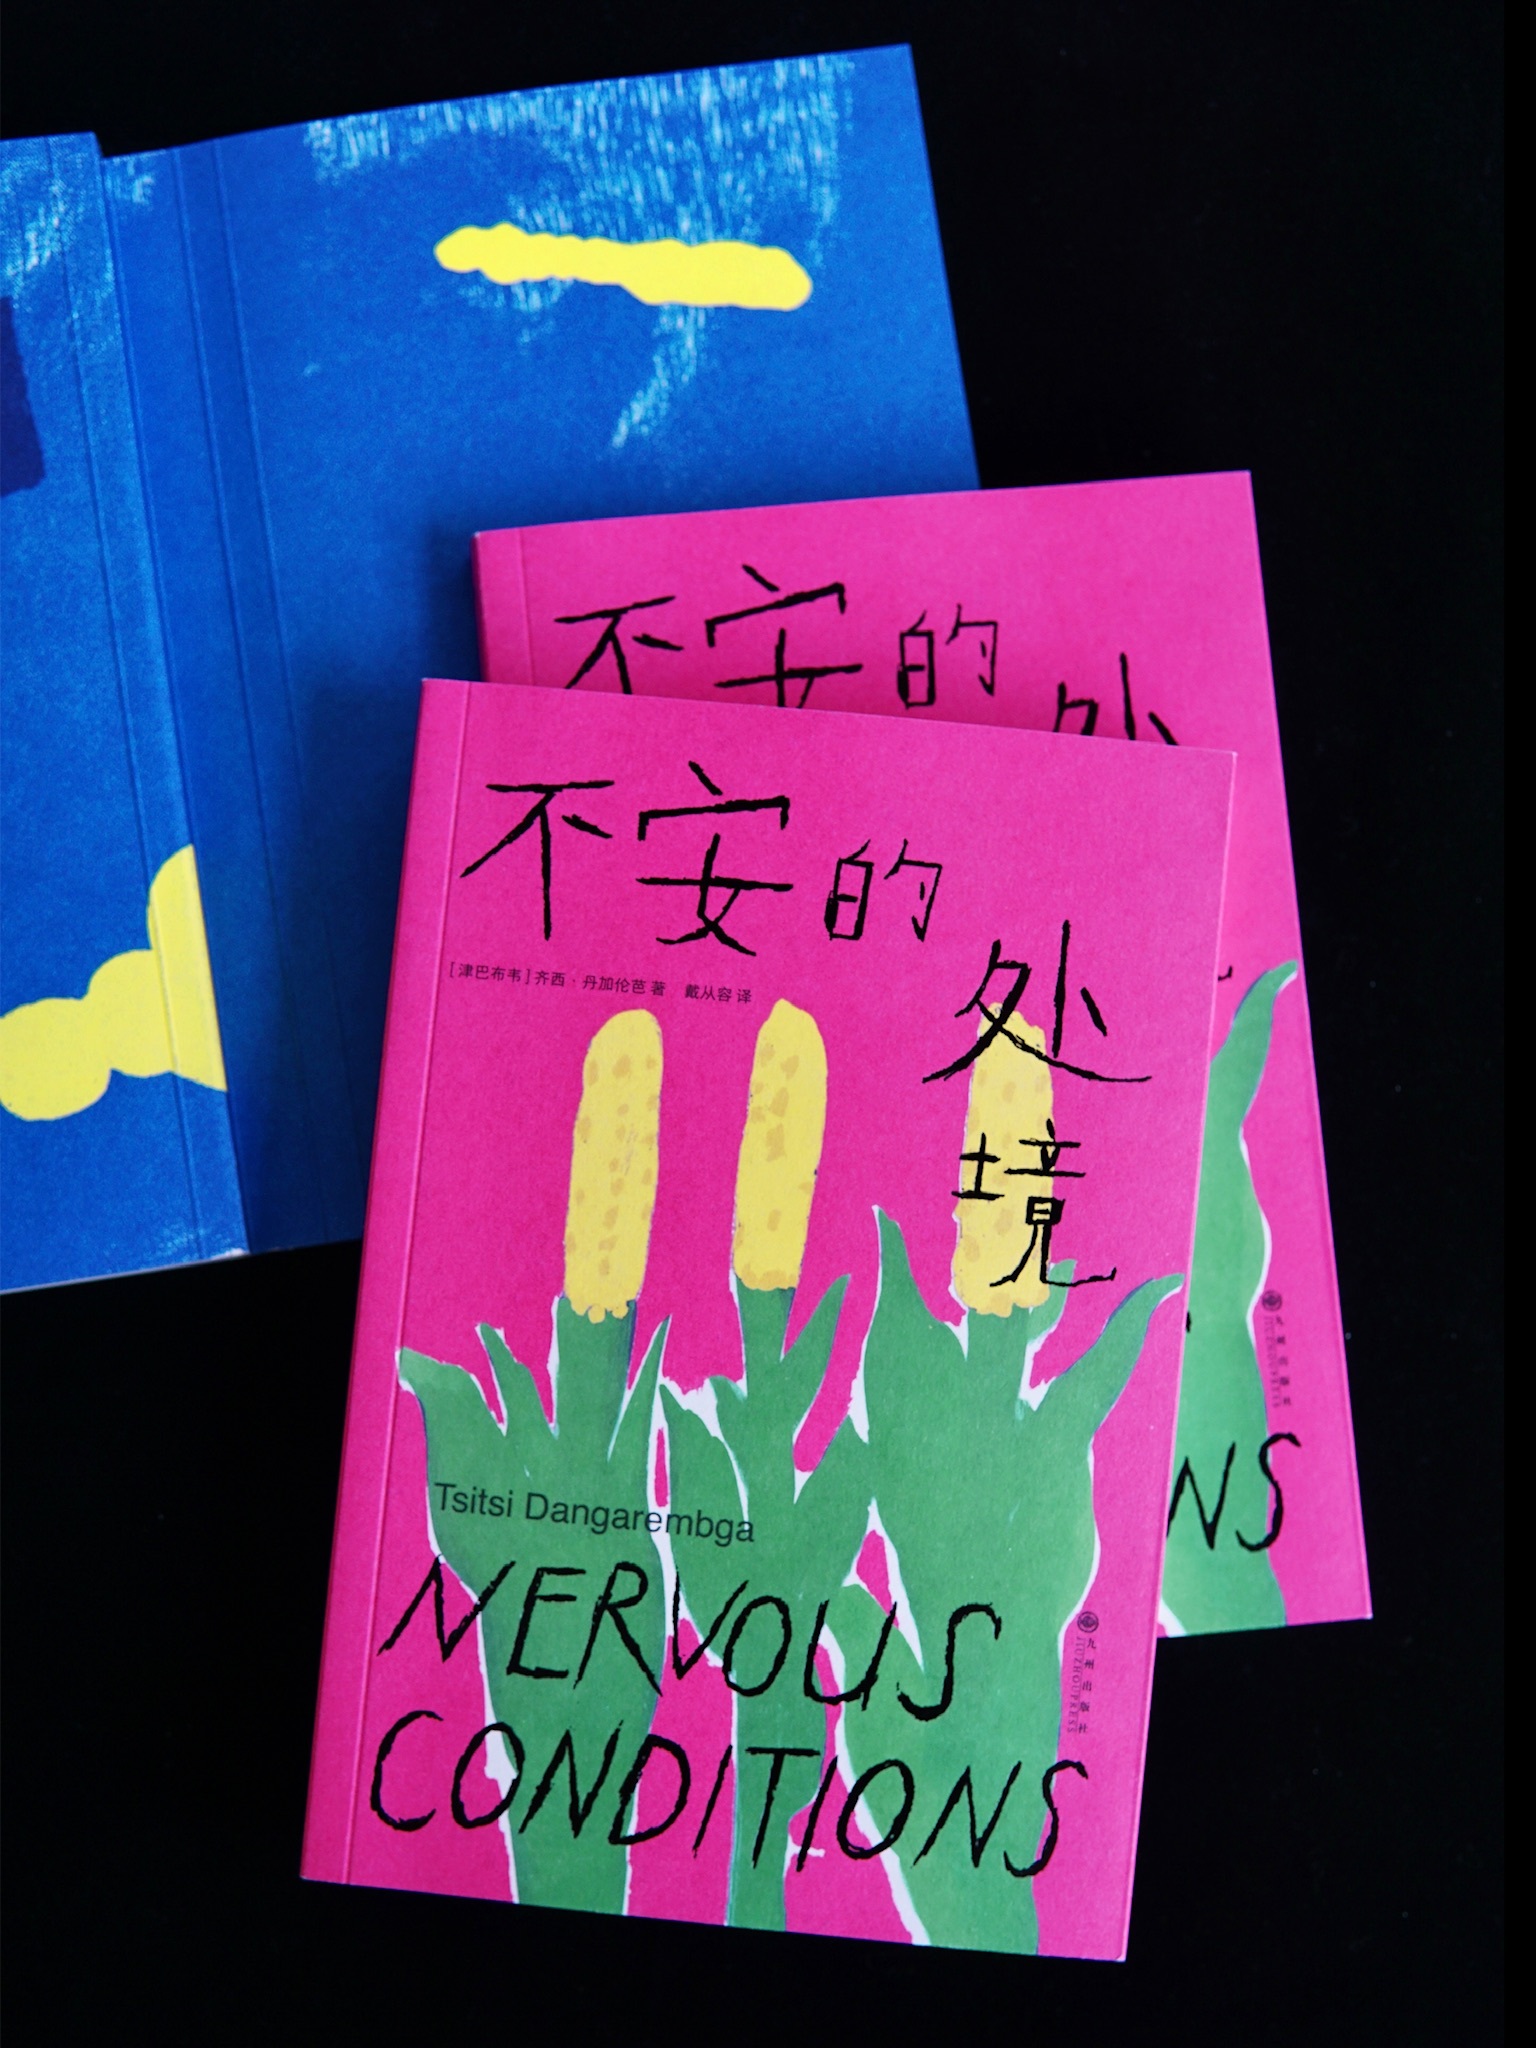 不安的
处
不安的
处
境
[津巴布韦]齐西·丹加伦芭 著 戴从容 译
Tsitsi Dangarembga
NERVOUS
CONDITIONS
九州出版社
JIUZHOUPRESS
九州出版社
JIUZHOUPRESS
NS